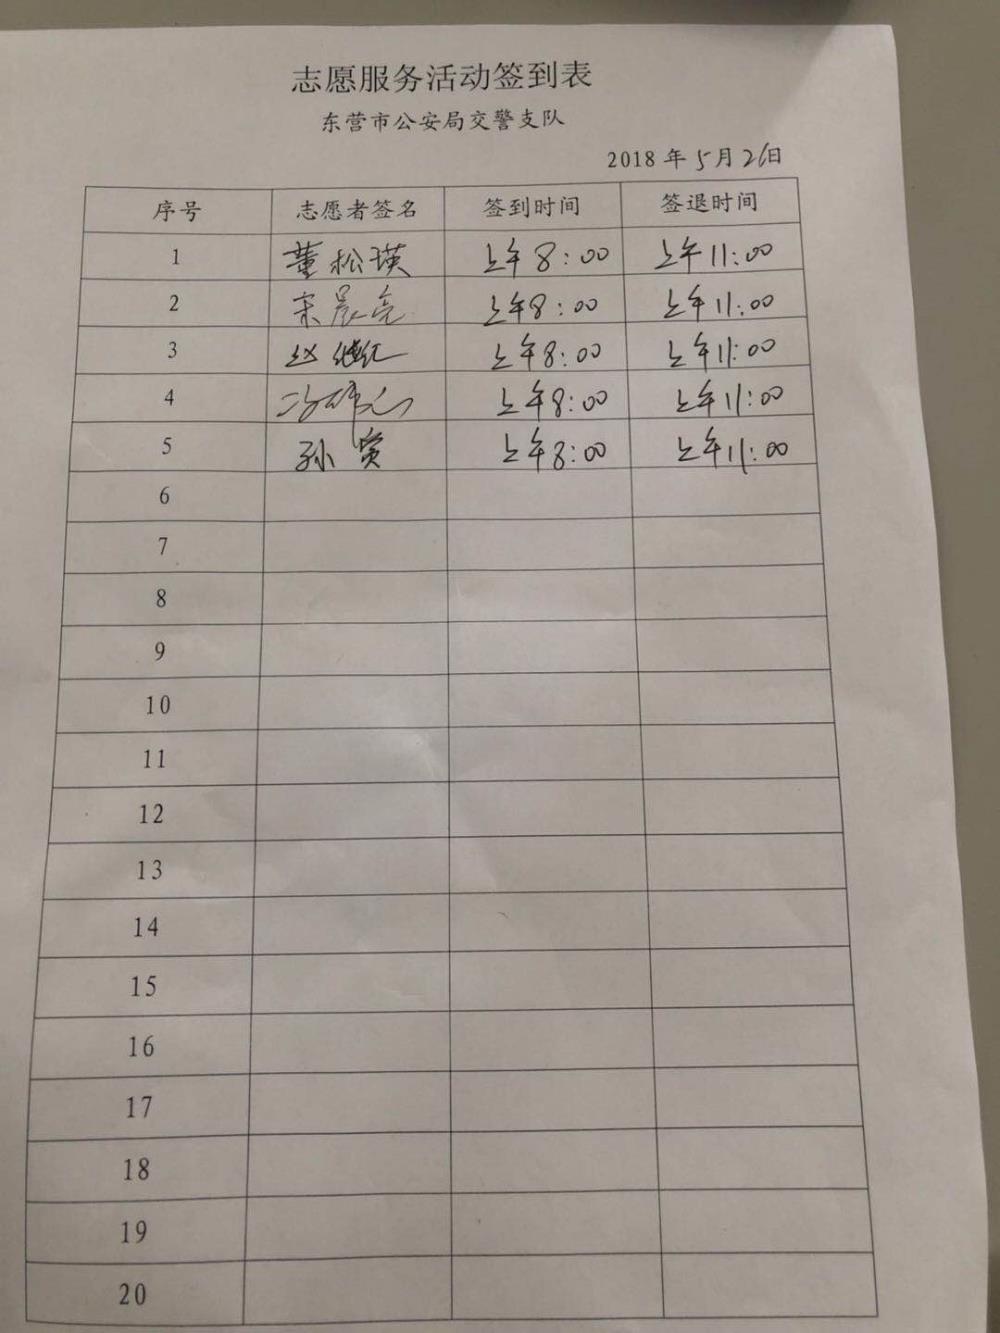 志愿服务活动签到表
东营市公安局交警支队
2018 年 5 月 26 日
序号 志愿者签名 签到时间 签退时间
1 董松瑛 上午8:00 上午11:00
2 宋晨亮 上午8:00 上午11:00
3 赵继红 上午8:00 上午11:00
4 上午8:00 上午11:00
5 孙寅 上午8:00 上午11:00
6
7
8
9
10
11
12
13
14
15
16
17
18
19
20